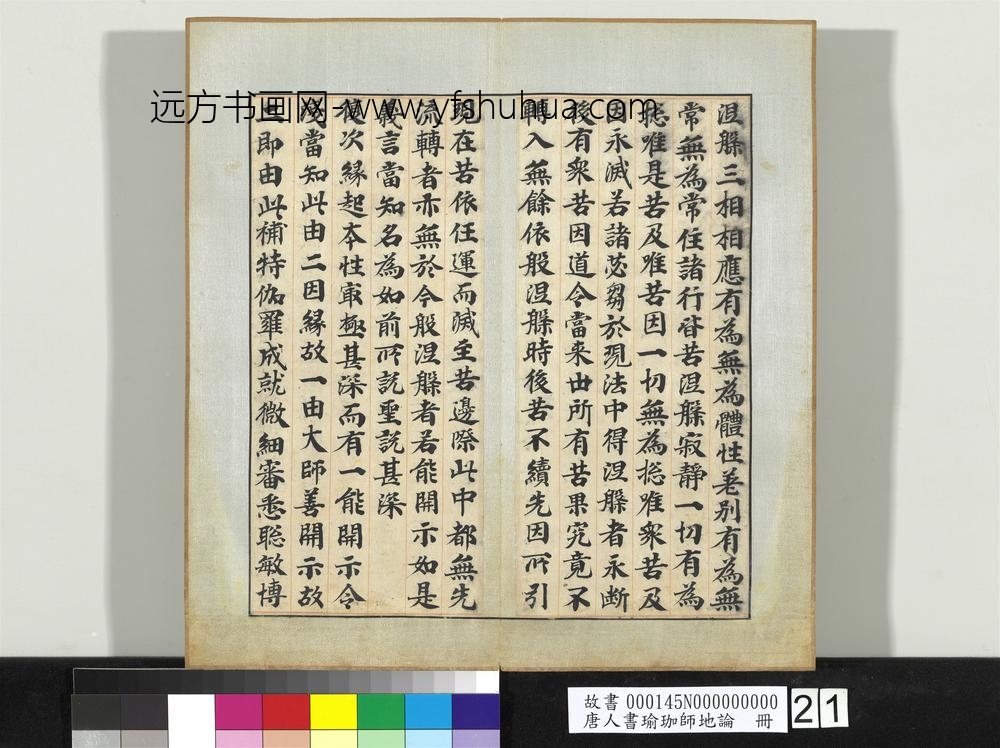 远方书画网-www.yfshuhua.com
涅槃三相相應有為無為體性差別有為無
常無為常住諸行皆苦涅槃寂靜一切有為
揔唯是苦及唯苦因一切無為揔唯衆苦及
因永滅若諸苾芻於現法中得涅槃者永断
後有衆苦因道令當来世所有苦果究竟不
轉入無餘依般涅槃時後苦不續先因所引
現在苦依任運而滅至苦邊際此中都無先
流轉者亦無於今般涅槃者若能開示如是
義言當知名為如前所説聖説甚深
復次緣起本性寂極甚深而有一能開示令
淺當知此由二因緣故一由大師善開示故
即由此補特伽羅成就微細審悉聡敏博
故書 000145N000000000
唐人書瑜珈師地論 冊
21